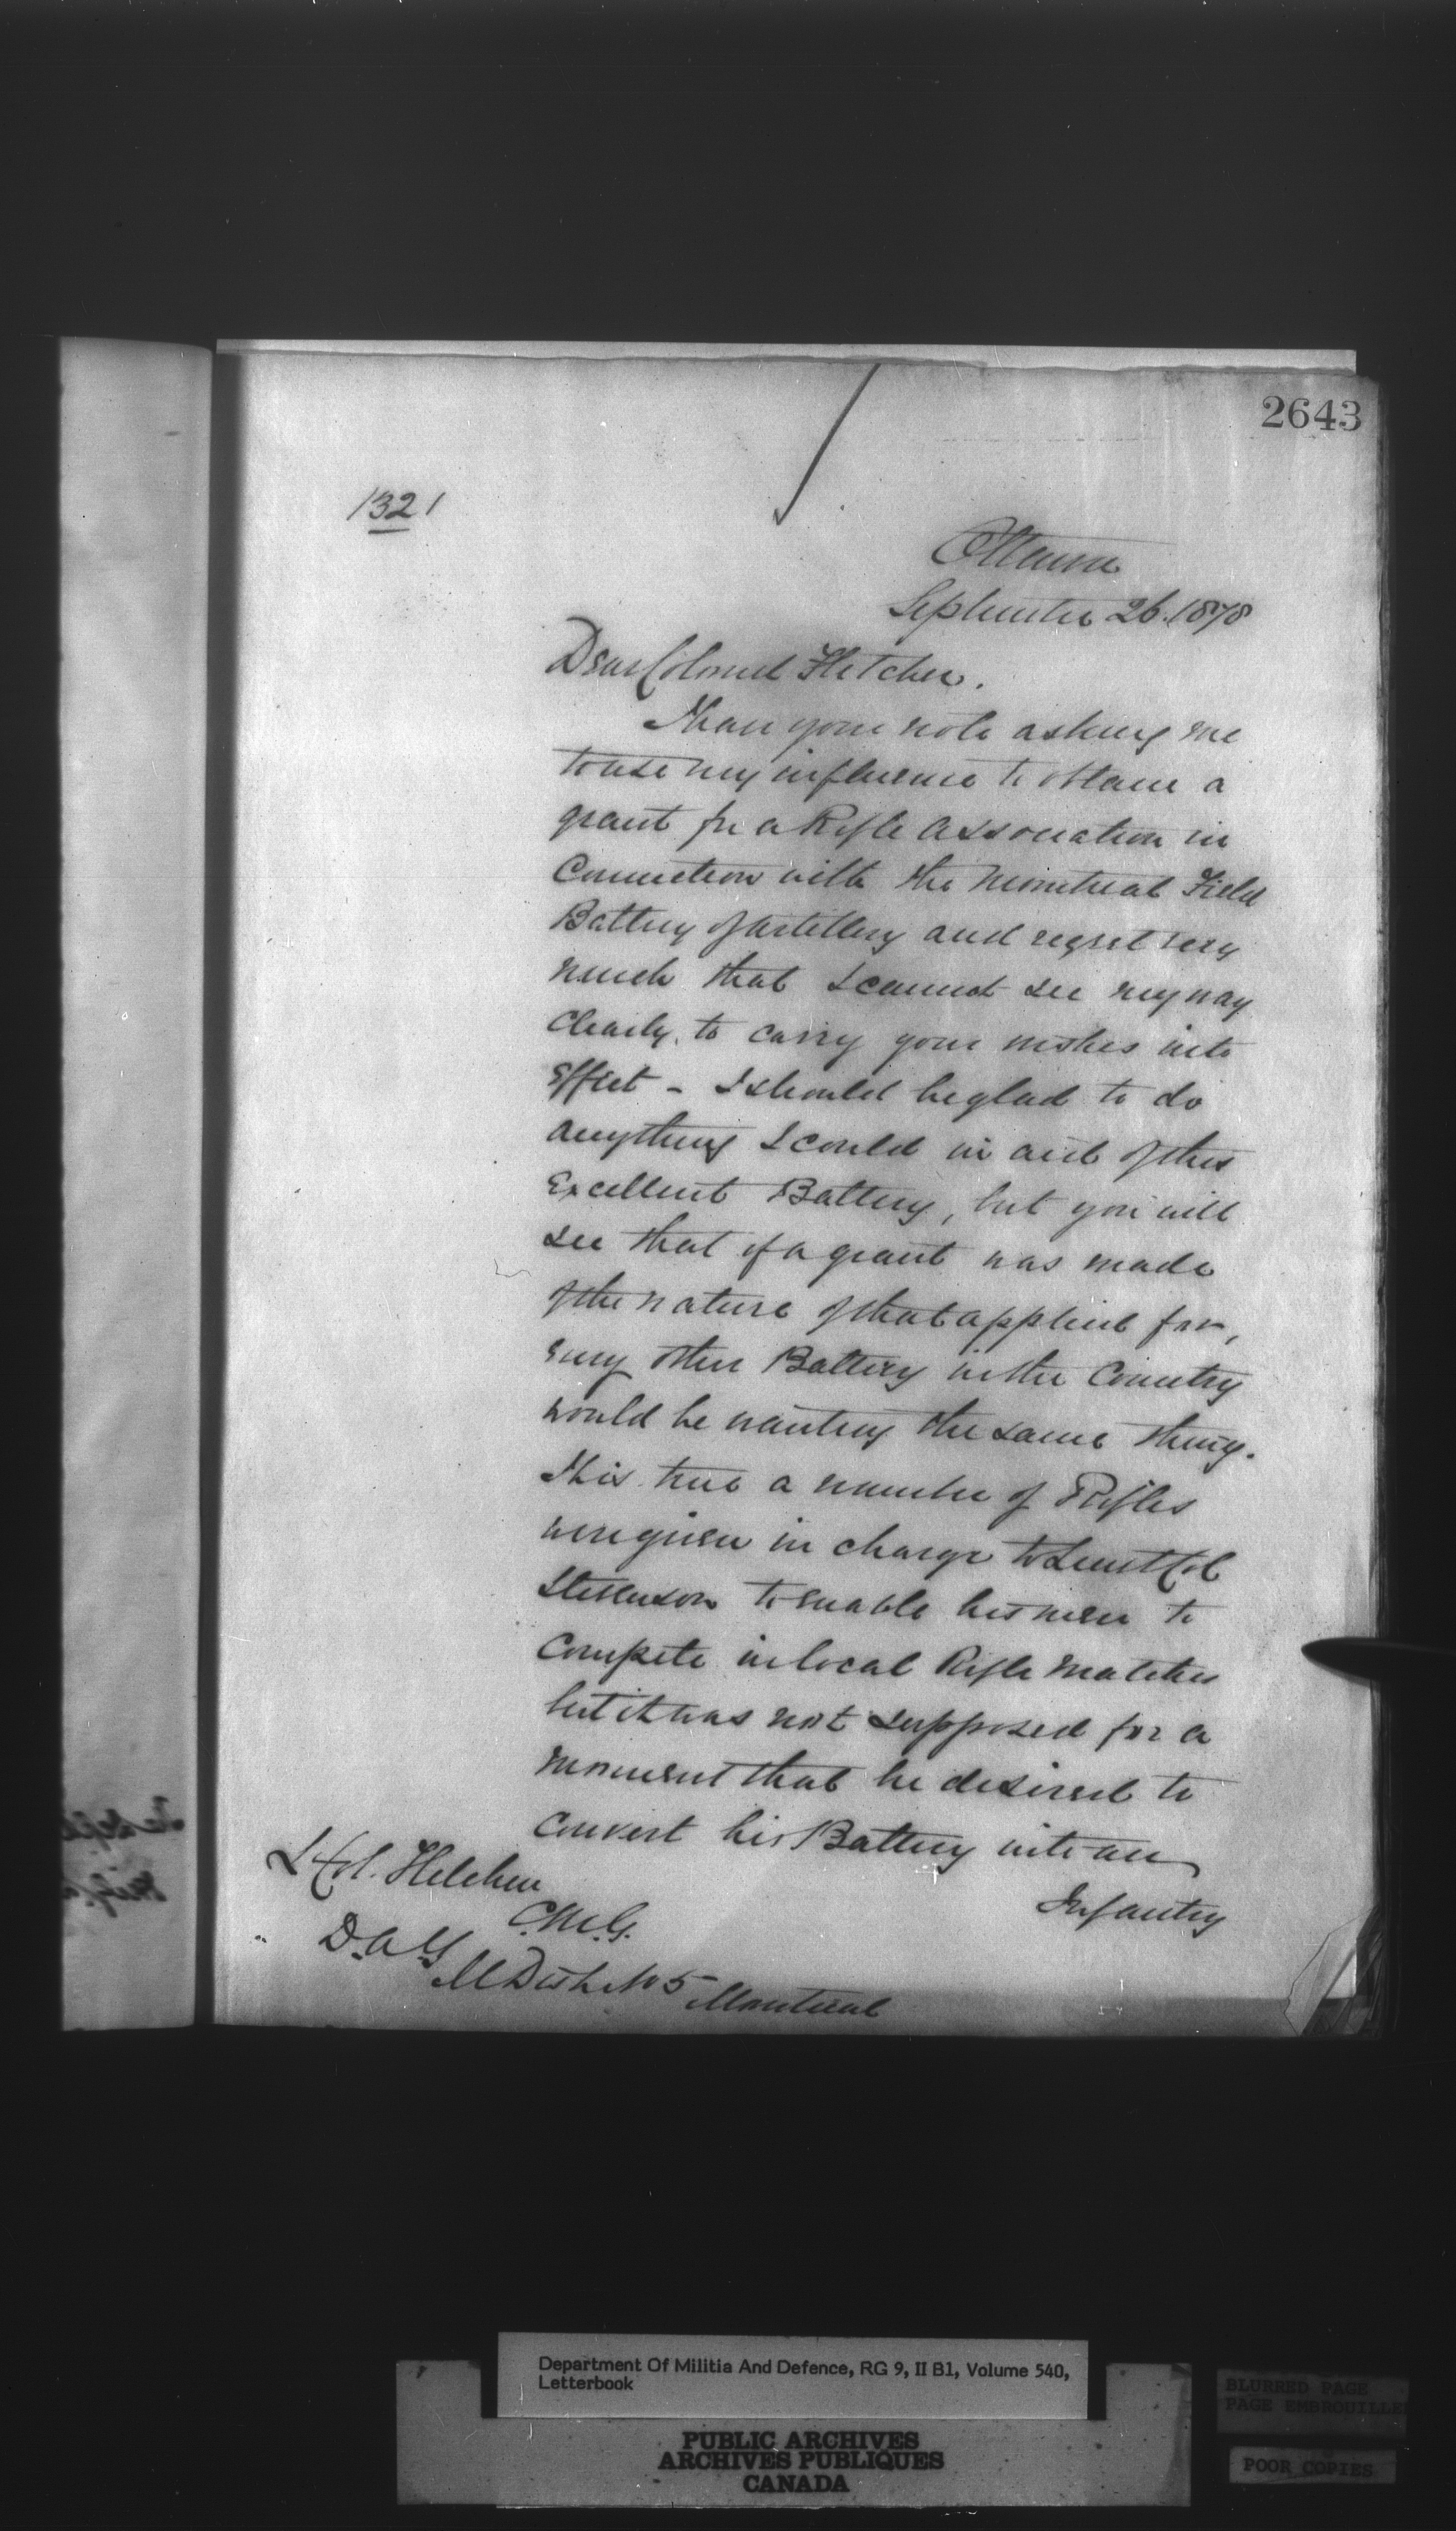 2643
1321
Ottawa
September 26. 1878
Dear Colonel Fletcher.
I have your note asking me
to use my influence to obtain a
grant for a Rifle Association in
Connection with the Montreal Field
Battery of Artillery and regret very
much that I cannot see my way
clearly, to carry your wishes into
effect - I should be glad to do
anything I could in aid of this
Excellent Battery, but you will
see that if a grant was made
of the nature of that applied for,
every other Battery in the Country
would be wanting the same thing.
It is true a number of Rifles
were given in charge to Lieut Col
Stevenson to enable his men to
compete in local Rifle Matches
but it was not supposed for a
moment that he desired to
convert his Battery into an
Infantry
Lt Col. Fletcher
C.M.G.
D.A.G
M Dist No 5
Montreal
Department Of Militia And Defence, RG 9, II B1, Volume 540,
Letterbook
PUBLIC ARCHIVES
ARCHIVES PUBLIQUES
CANADA
BLURRED PAGE
PAGE EMBROUILLE
POOR COPIES